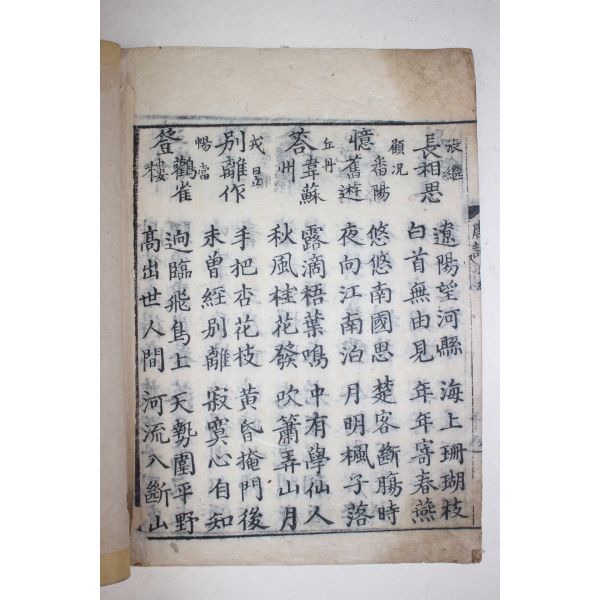 張繼
長相思
遼陽望河縣 海上珊瑚枝
白首無由見 年年寄春燕
顧况
憶番陽舊遊
悠悠南國思 楚客斷膓時
夜向江南泊 月明楓子落
丘丹
答韋蘇州
露滴梧葉鳴 中有學仙人
秋風桂花發 吹簫弄山月
戎昱
別離作
手把杏花枝 黃昏掩門後
未曾經別離 寂寞心自知
暢當
登鸛雀樓
逈臨飛鳥上 天勢圍平野
髙出世人間 河流入斷山